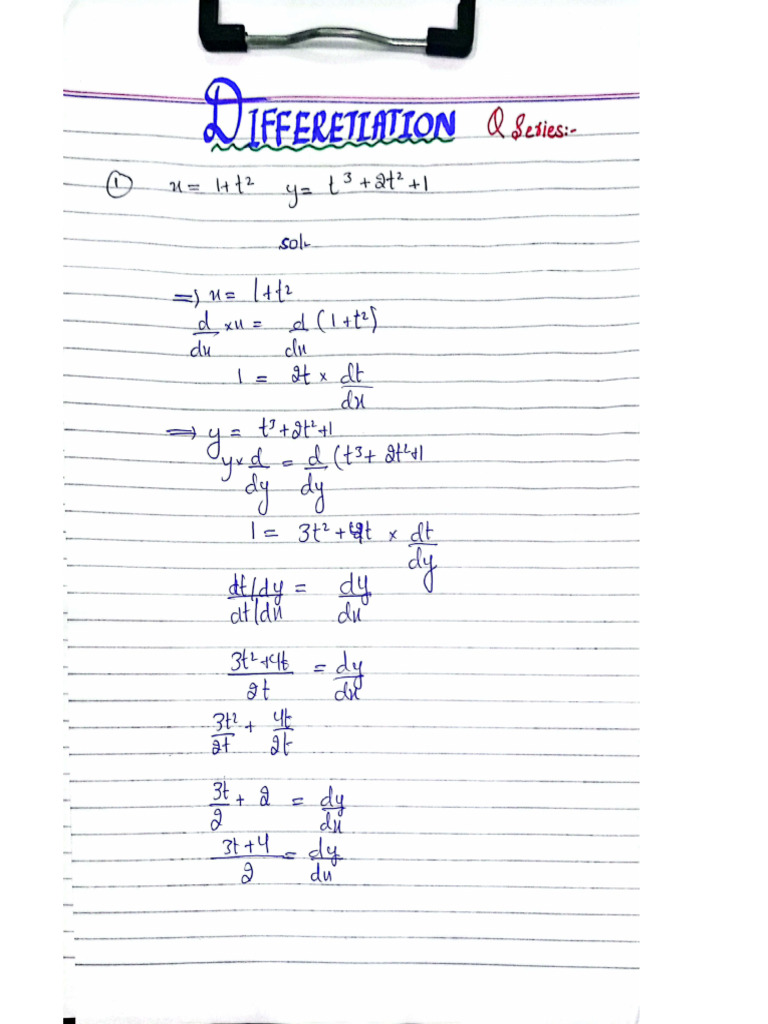 DIFFERETIATION Q Series:-
① x = 1+t² y = t³+2t²+1
sol-
=> x = 1+t²
d/dx × x = d/dx (1+t²)
1 = 2t × dt/dx
=> y = t³+2t²+1
y× d/dy = d/dy (t³+ 2t²+1
1 = 3t²+4t × dt/dy
dt/dy / dt/dx = dy/dx
3t²+4t / 2t = dy/dx
3t²/2t + 4t/2t
3t/2 + 2 = dy/dx
3t+4 / 2 = dy/dx